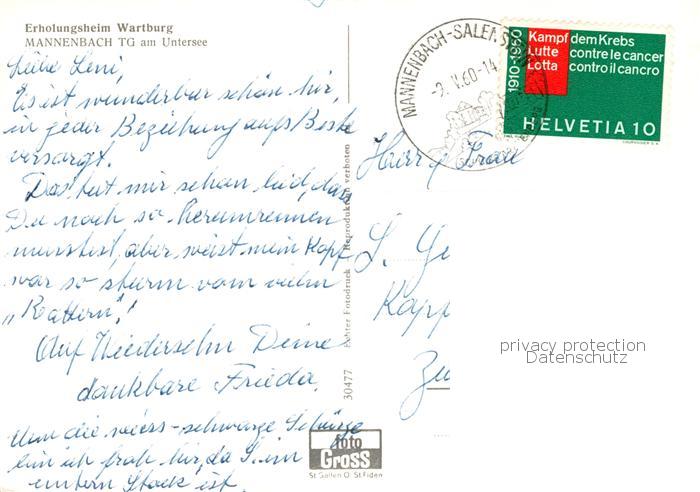 Erholungsheim Wartburg
MANNENBACH TG am Untersee
Liebe Leni,
Es ist wunderbar schön hier,
in jeder Beziehung aufs Beste
versorgt.
Das tut mir schon leid, dass
Du noch so herumrennen
musstest, aber weisst mein Kopf
war so sturm vom vielen
„Rattern"!
Auf Wiedersehn Deine
dankbare Frieda.
Um die weiss-schwarze Schürze
bin ich froh hier, da S. im
untern Stock ist.
Echter Fotodruck Reproduktion verboten
30477
foto
Gross
St. Gallen O. St. Fiden
MANNENBACH-SALENSTEIN
-9. V. 60-14
1910-1960
Kampf dem Krebs
Lutte contre le cancer
Lotta contro il cancro
HELVETIA 10
COURVOISIER S.A.
Herr & Frau
Kapp
Zu
privacy protection
Datenschutz